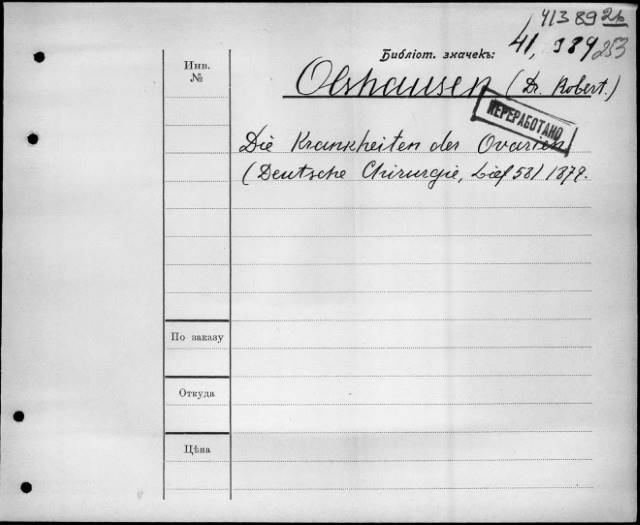 41389 26
41,989 253
Библіот. значекъ:
Инв.
№
Olshausen (Dr. Robert.)
ПЕРЕРАБОТАНО
Die Krankheiten der Ovarien
(Deutsche Chirurgie, Lief 58) 1879.
По заказу
Откуда
Цѣна